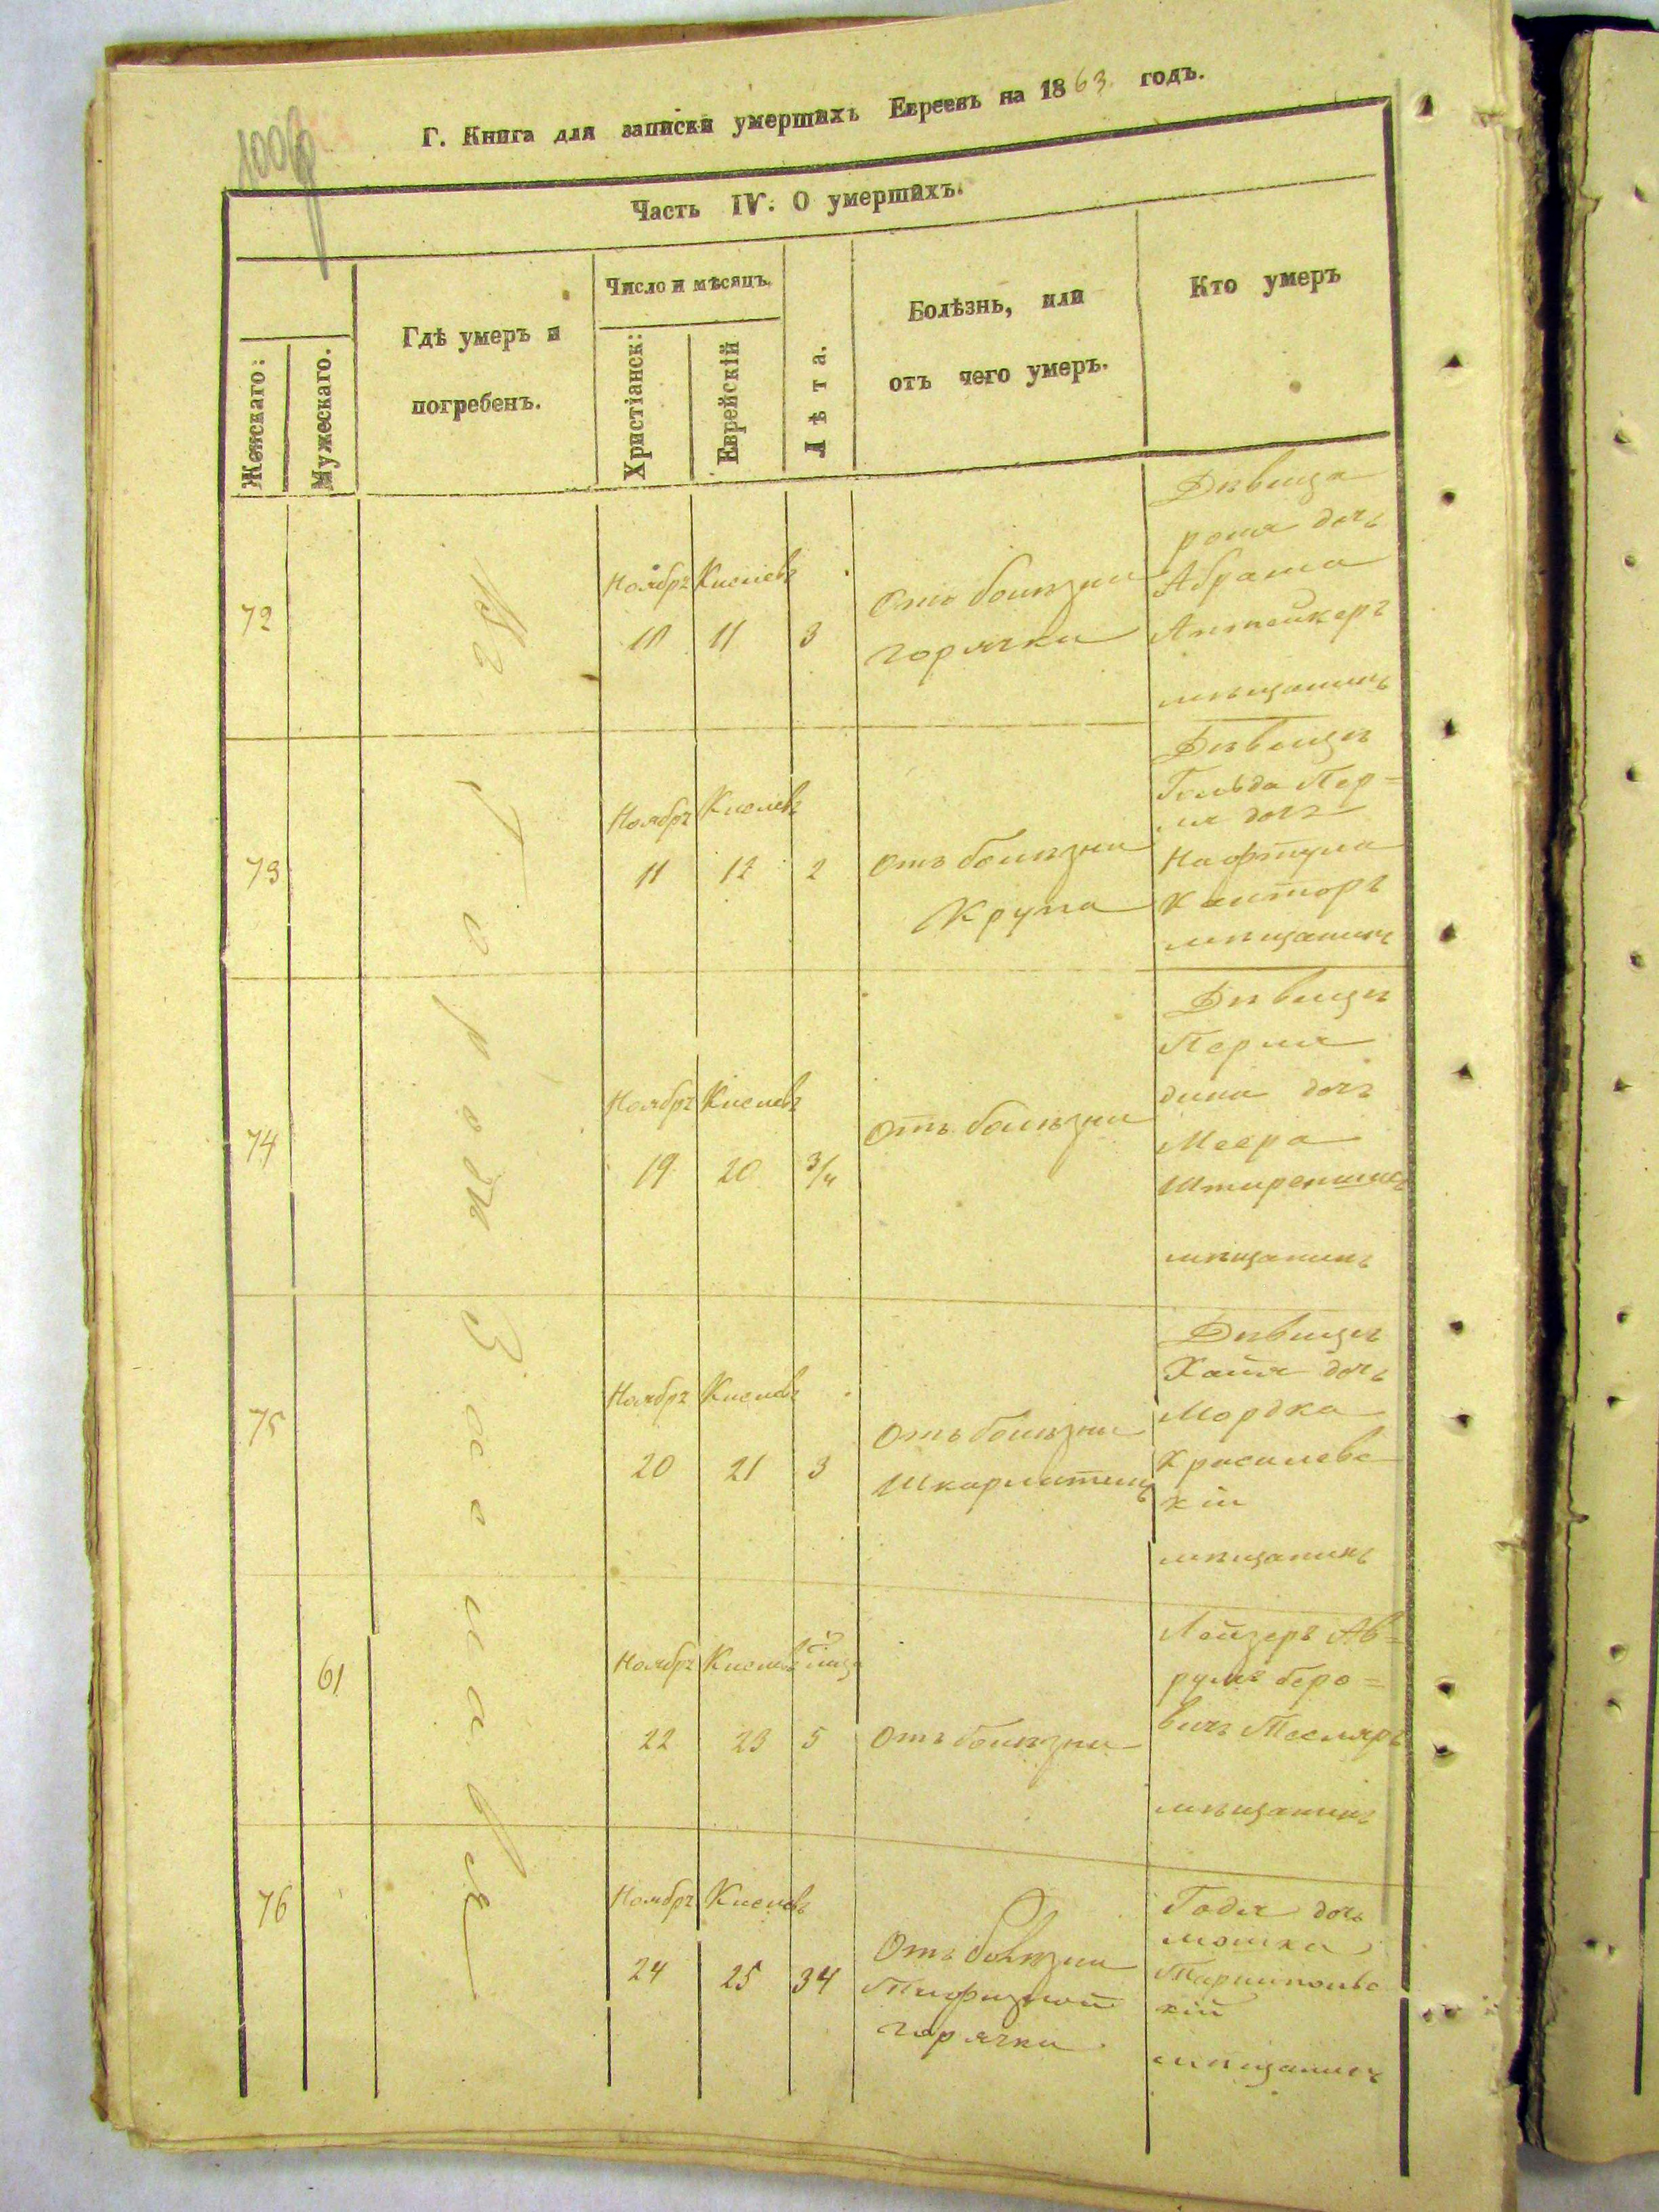 Г. Книга для записки умершихъ Евреевъ на 1863 годъ.
Часть IV. О умершихъ.
Женскаго:
Мужескаго.
Гдѣ умеръ и
погребенъ.
Число и мѣсяцъ.
Христіанск:
Еврейскій
Лѣта.
Болѣзнь, или
отъ чего умеръ.
Кто умеръ
Въ Городѣ Зославѣ
72
Ноябрь Кислевъ
10 11 3
Отъ болѣзни
горячки
Дѣвица
роня дочь
Абрама
мѣщанинъ
73
Ноябрь Кислевъ
11 12 2
Отъ болѣзни
Крупа
Дѣвица
Гольда Пер=
ля дочь
Нафтула
Канторъ
мѣщанинъ
74
Ноябрь Кислевъ
19 20 3/4
Отъ болѣзни
Дѣвица
Перля
дина дочь
Меера
мѣщанинъ
75
Ноябрь Кислевъ
20 21 3
Отъ болѣзни
Шкарлатины
Дѣвица
Хая дочь
Мордка
Красилевс
кій
мѣщанинъ
61
Ноябрь Кислевъ
22 23 5
Отъ болѣзни
Лейзеръ Ав=
румъ беро=
вичъ Тесляръ
мѣщанинъ
76
Ноябрь Кислевъ
24 25 34
Отъ болѣзни
Тифозной
горячки
Годя дочь
мошка
кій
мѣщанинъ